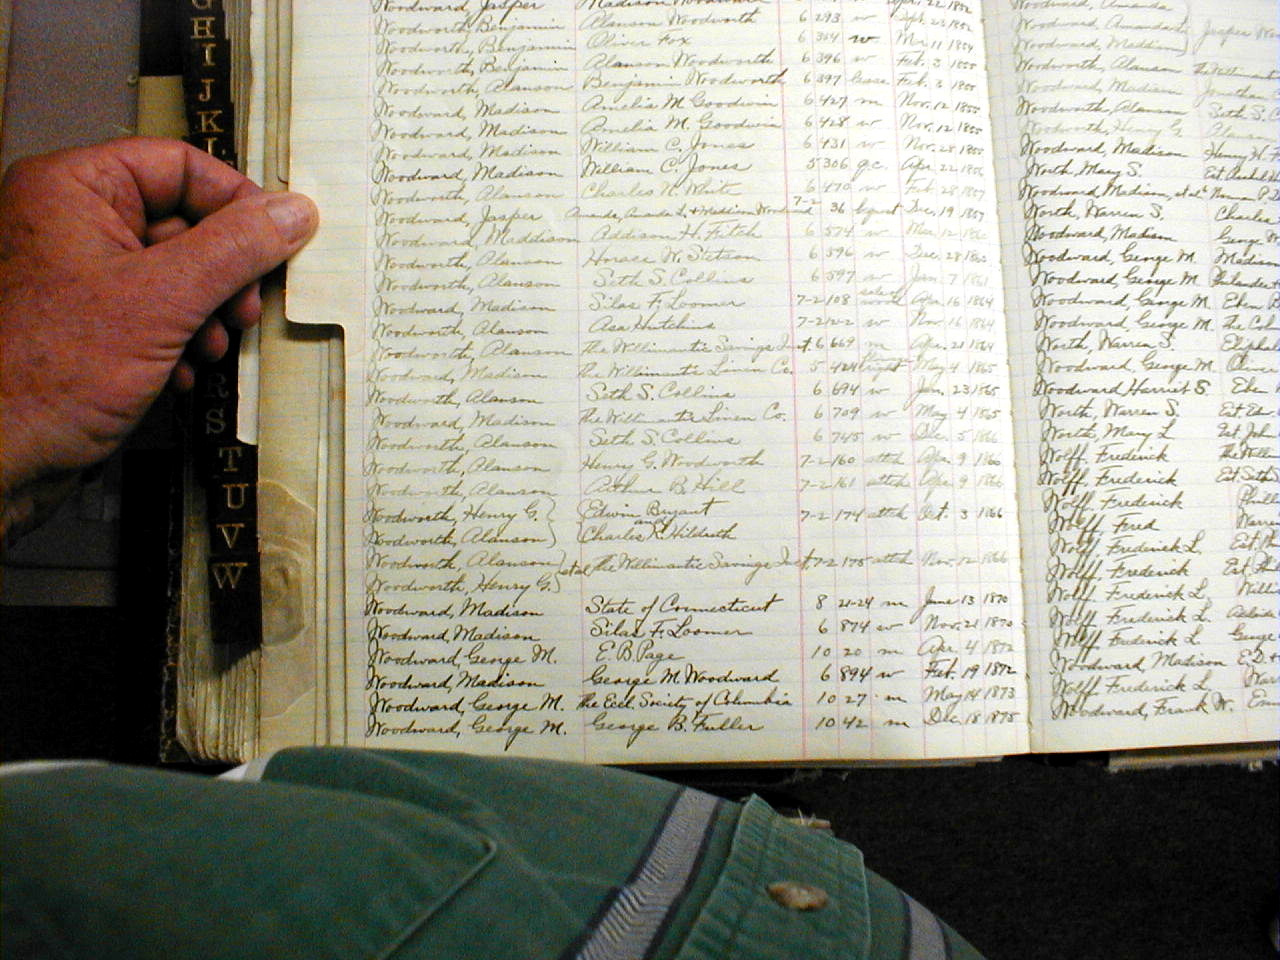 G
H
I
J
K
L
R
S
T
U
V
W
Woodward, Jasper Madison Woodward
Woodworth, Benjamin Alanson Woodworth 6 293 w Apr. 22 1852
Woodworth, Benjamin Oliver Fox 6 384 w Mr. 11 1854
Woodworth, Benjamin Alanson Woodworth 6 396 w Feb. 3 1855
Woodworth, Alanson Benjamin Woodworth 6 397 lease Feb. 3 1855
Woodward, Madison Amelia M. Goodwin 6 427 m Nov. 12 1855
Woodward, Madison Amelia M. Goodwin 6 428 w Nov. 12 1855
Woodward, Madison William C. Jones 6 431 w Nov. 28 1855
Woodward, Madison William C. Jones 5 306 q.c. Apr. 22 1856
Woodworth, Alanson Charles N. White 6 470 w Feb 28 1857
Woodward, Jasper Amanda, Amanda L. & Madison Woodward 7-2 36 Dec. 19 1857
Woodward, Maddison Addison H. Fitch 6 574 w Mar. 12 1860
Woodworth, Alanson Horace W. Stetson 6 596 w Dec. 28 1860
Woodworth, Alanson Seth S. Collins 6 597 w Jan. 7 1861
Woodward, Madison Silas F. Loomer 7-2 108 Apr. 16 1864
Woodworth, Alanson Asa Hutchins 7-2 122 w Nov. 16 1864
Woodworth, Alanson the Willimantic Savings Inst. 6 669 m Apr. 21 1864
Woodward, Madison the Willimantic Linen Co. 5 424 flow right May 4 1865
Woodworth, Alanson Seth S. Collins 6 694 w Jan. 23 1865
Woodward, Madison the Willimantic Linen Co. 6 709 w May 4 1865
Woodworth, Alanson Seth S. Collins 6 745 w Dec. 5 1866
Woodworth, Alanson Henry G. Woodworth 7-2-160 attch Apr. 9 1866
Woodworth, Alanson Arthur B. Hill 7-2-161 attch Apr. 9 1866
Woodworth, Henry G. Edwin Bryant and 7-2 174 attch Oct. 3 1866
Woodworth, Alanson Charles K. Hildreth
Woodworth, Alanson et al the Willimantic Savings Inst. 7-2 175 attch Nov. 12 1866
Woodworth, Henry G.
Woodward, Madison State of Connecticut 8 21-24 m June 13 1870
Woodward, Madison Silas F. Loomer 6 874 w Nov. 21 1870
Woodward, George M. E. B. Page 10 20 m Apr. 4 1872
Woodward, Madison George M. Woodward 6 894 w Feb. 19 1872
Woodward, George M. the Eccl. Society of Columbia 10 27 m May 14 1873
Woodward, George M. George B. Fuller 10 42 m Dec. 18 1875
Woodward, Amanda
Woodward, Amanda
Woodward, Maddison Jasper
Woodworth, Alanson the Willimantic
Woodward, Madison Jonathan
Woodworth, Alanson Seth S. C
Woodworth, Henry G. Alanson
Woodward, Madison Henry H.
Worth, Mary S. Est.
Woodward Madison, et al Norman P.
Worth, Warren S. Charles
Woodward, Madison George
Woodward, George M. Madison
Woodward, George M. Philander
Woodward, George M. Eben
Woodward, George M. the Col
Worth, Warren S. Eliphal
Woodward, George M. Oliver
Woodward Harriet S. Eben
Worth, Warren S. Est.
Worth, Mary L Est. John
Wolff, Frederick the Willim
Wolff, Frederick Est. Seth
Wolff, Frederick Phill
Wolff, Fred Warren
Wolff, Frederick L. Est.
Wolff, Frederick Est.
Wolff, Frederick L. Willi
Wolff, Frederick L. Adelaide
Wolff, Frederick L. George
Woodward Madison E.D.
Wolff, Frederick L.
Woodward, Frank W.